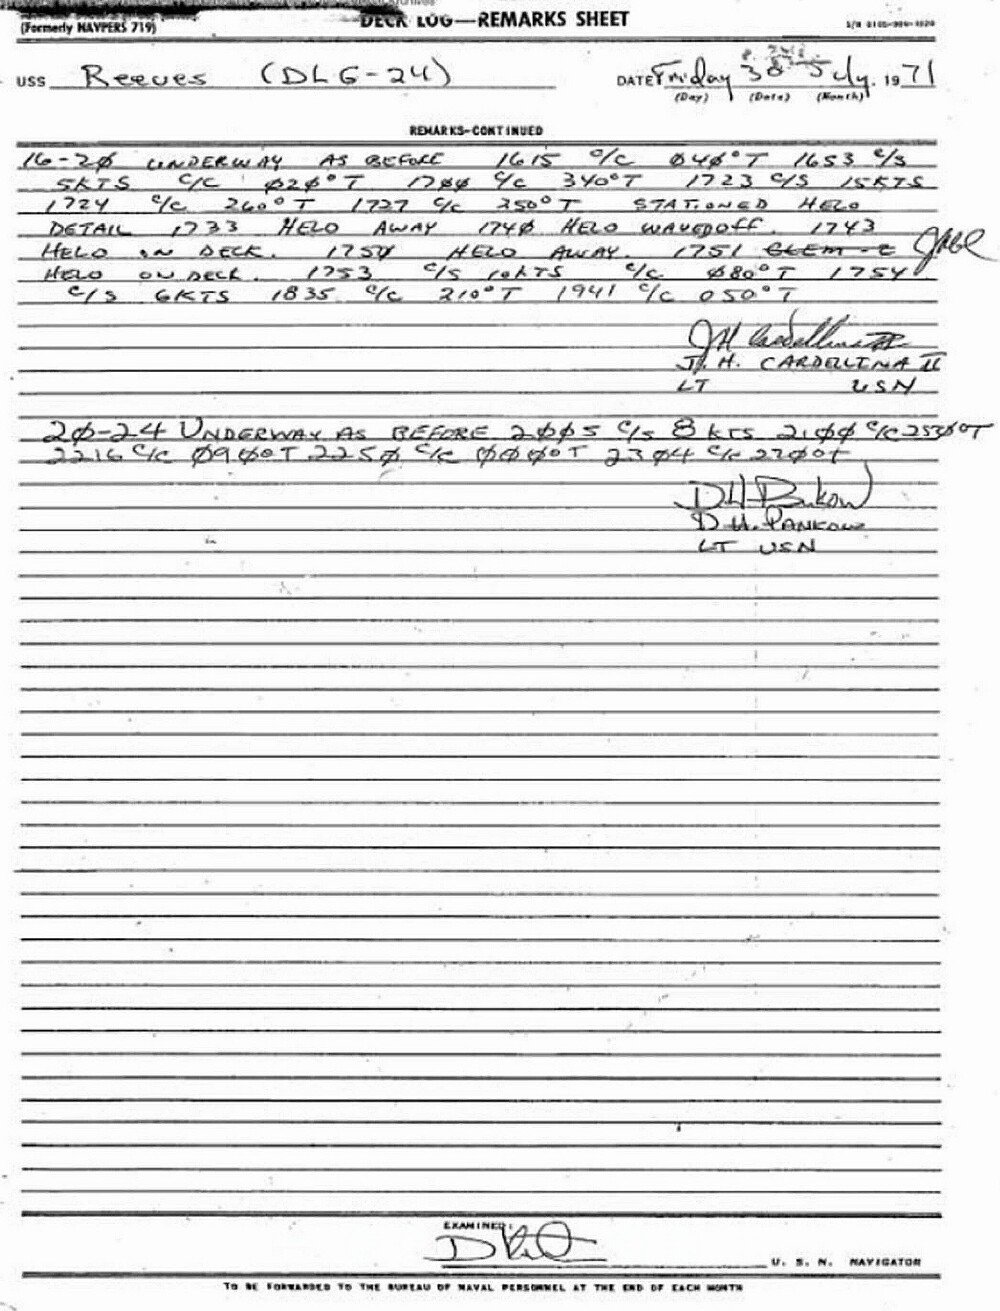 DECK LOG—REMARKS SHEET
(Formerly NAVPERS 719)
USS Reeves (DLG-24) DATE Friday 30 July, 1971
(Day) (Date) (Month)
REMARKS-CONTINUED
16-2Ø UNDERWAY AS BEFORE 1615 c/c Ø4Ø°T 1653 c/s
5KTS c/c Ø2Ø°T 17ØØ c/c 340°T 1723 c/s 15KTS
1724 c/c 260°T 1727 c/c 250°T STATIONED HELO
DETAIL 1733 HELO AWAY 174Ø HELO WAVEDOFF. 1743
HELO ON DECK. 175Ø HELO AWAY. 1751
HELO ON DECK. 1753 c/s 10KTS c/c Ø80°T 1754
c/s 6KTS 1835 c/c 210°T 1941 c/c 050°T
J. H. CARDELLINA II
LT USN
2Ø-24 UNDERWAY AS BEFORE 2ØØ5 c/s 8 KTS 21ØØ c/c
2216 c/c Ø9Ø°T 225Ø c/c ØØØ°T 23Ø4 c/c 27Ø°T
D. H. PANKOW
LT USN
EXAMINED:
U. S. N. NAVIGATOR
TO BE FORWARDED TO THE BUREAU OF NAVAL PERSONNEL AT THE END OF EACH MONTH